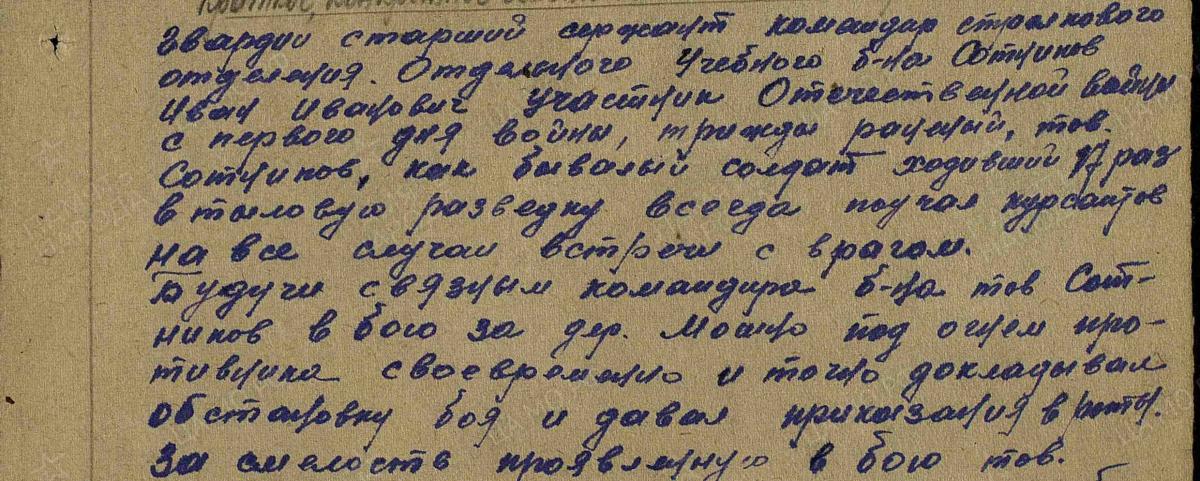 Краткое, конкретное
Гвардии старший сержант командир стрелкового
отделения. Отдельного Учебного б-на Сотников
Иван Иванович участник Отечественной войны
с первого дня войны, трижды раненый, тов.
Сотников, как бывалый солдат ходивший 17 раз
в тыловую разведку всегда поучал курсантов
на все случаи встречи с врагом.
Будучи связным командира б-на тов Сот-
ников в бою за дер. под огнем про-
тивника своевременно и точно докладывал
обстановку боя и давал приказания в роты.
За смелость проявленную в бою тов.